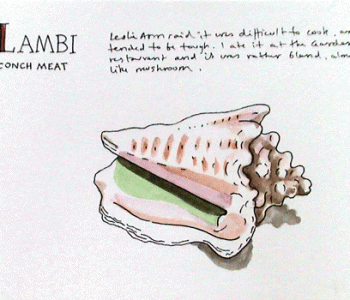 LAMBI
CONCH MEAT
Leslie Ann said it was difficult to cook, and
tended to be tough. I ate it at the
restaurant and it was rather bland,
like mushroom.